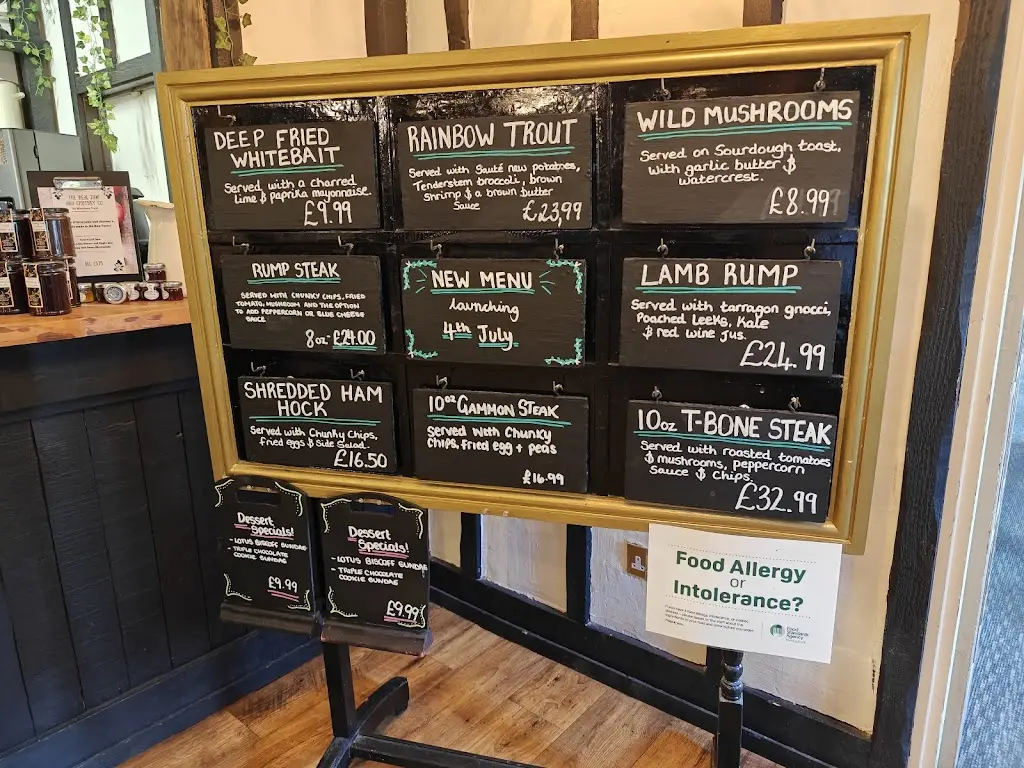 DEEP FRIED
WHITEBAIT
Served with a charred
lime & paprika mayonnaise.
£9.99
RAINBOW TROUT
Served with Sauté new potatoes,
Tenderstem broccoli, brown
Shrimp & a brown butter
Sauce
£23,99
WILD MUSHROOMS
Served on Sourdough toast,
with garlic butter &
watercrest.
£8.99
RUMP STEAK
SERVED WITH CHUNKY CHIPS, FRIED
TOMATO, MUSHROOM AND THE OPTION
TO ADD PEPPERCORN OR BLUE CHEESE
SAUCE
8oz £24.00
NEW MENU
launching
4th July
LAMB RUMP
Served with tarragon gnocci,
Poached Leeks, Kale
& red wine jus.
£24.99
SHREDDED HAM
HOCK
Served with Chunky Chips,
fried eggs & Side Salad.
£16.50
10oz GAMMON STEAK
Served with Chunky
Chips, fried egg + peas
£16.99
10oz T-BONE STEAK
Served with roasted tomatoes
& mushrooms, peppercorn
Sauce & Chips.
£32.99
Dessert
Specials!
- LOTUS BISCOFF SUNDAE
- TRIPLE CHOCOLATE
COOKIE SUNDAE
£9.99
Dessert
Specials!
- LOTUS BISCOFF SUNDAE
- TRIPLE CHOCOLATE
COOKIE SUNDAE
£9.99
Food Allergy
or
Intolerance?
Food
Standards
Agency